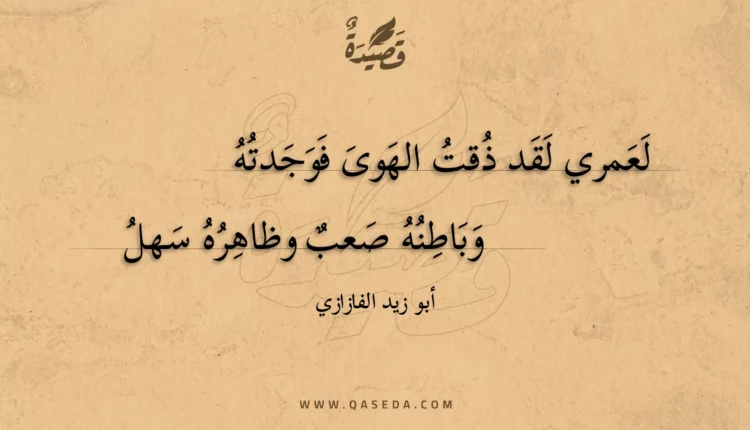 قَصِيدَةٌ
لَعَمري لَقَد ذُقتُ الهَوىَ فَوَجَدتُهُ
وَبَاطِنُهُ صَعبٌ وظاهِرُهُ سَهلُ
أبو زيد الفازازي
WWW.QASEDA.COM